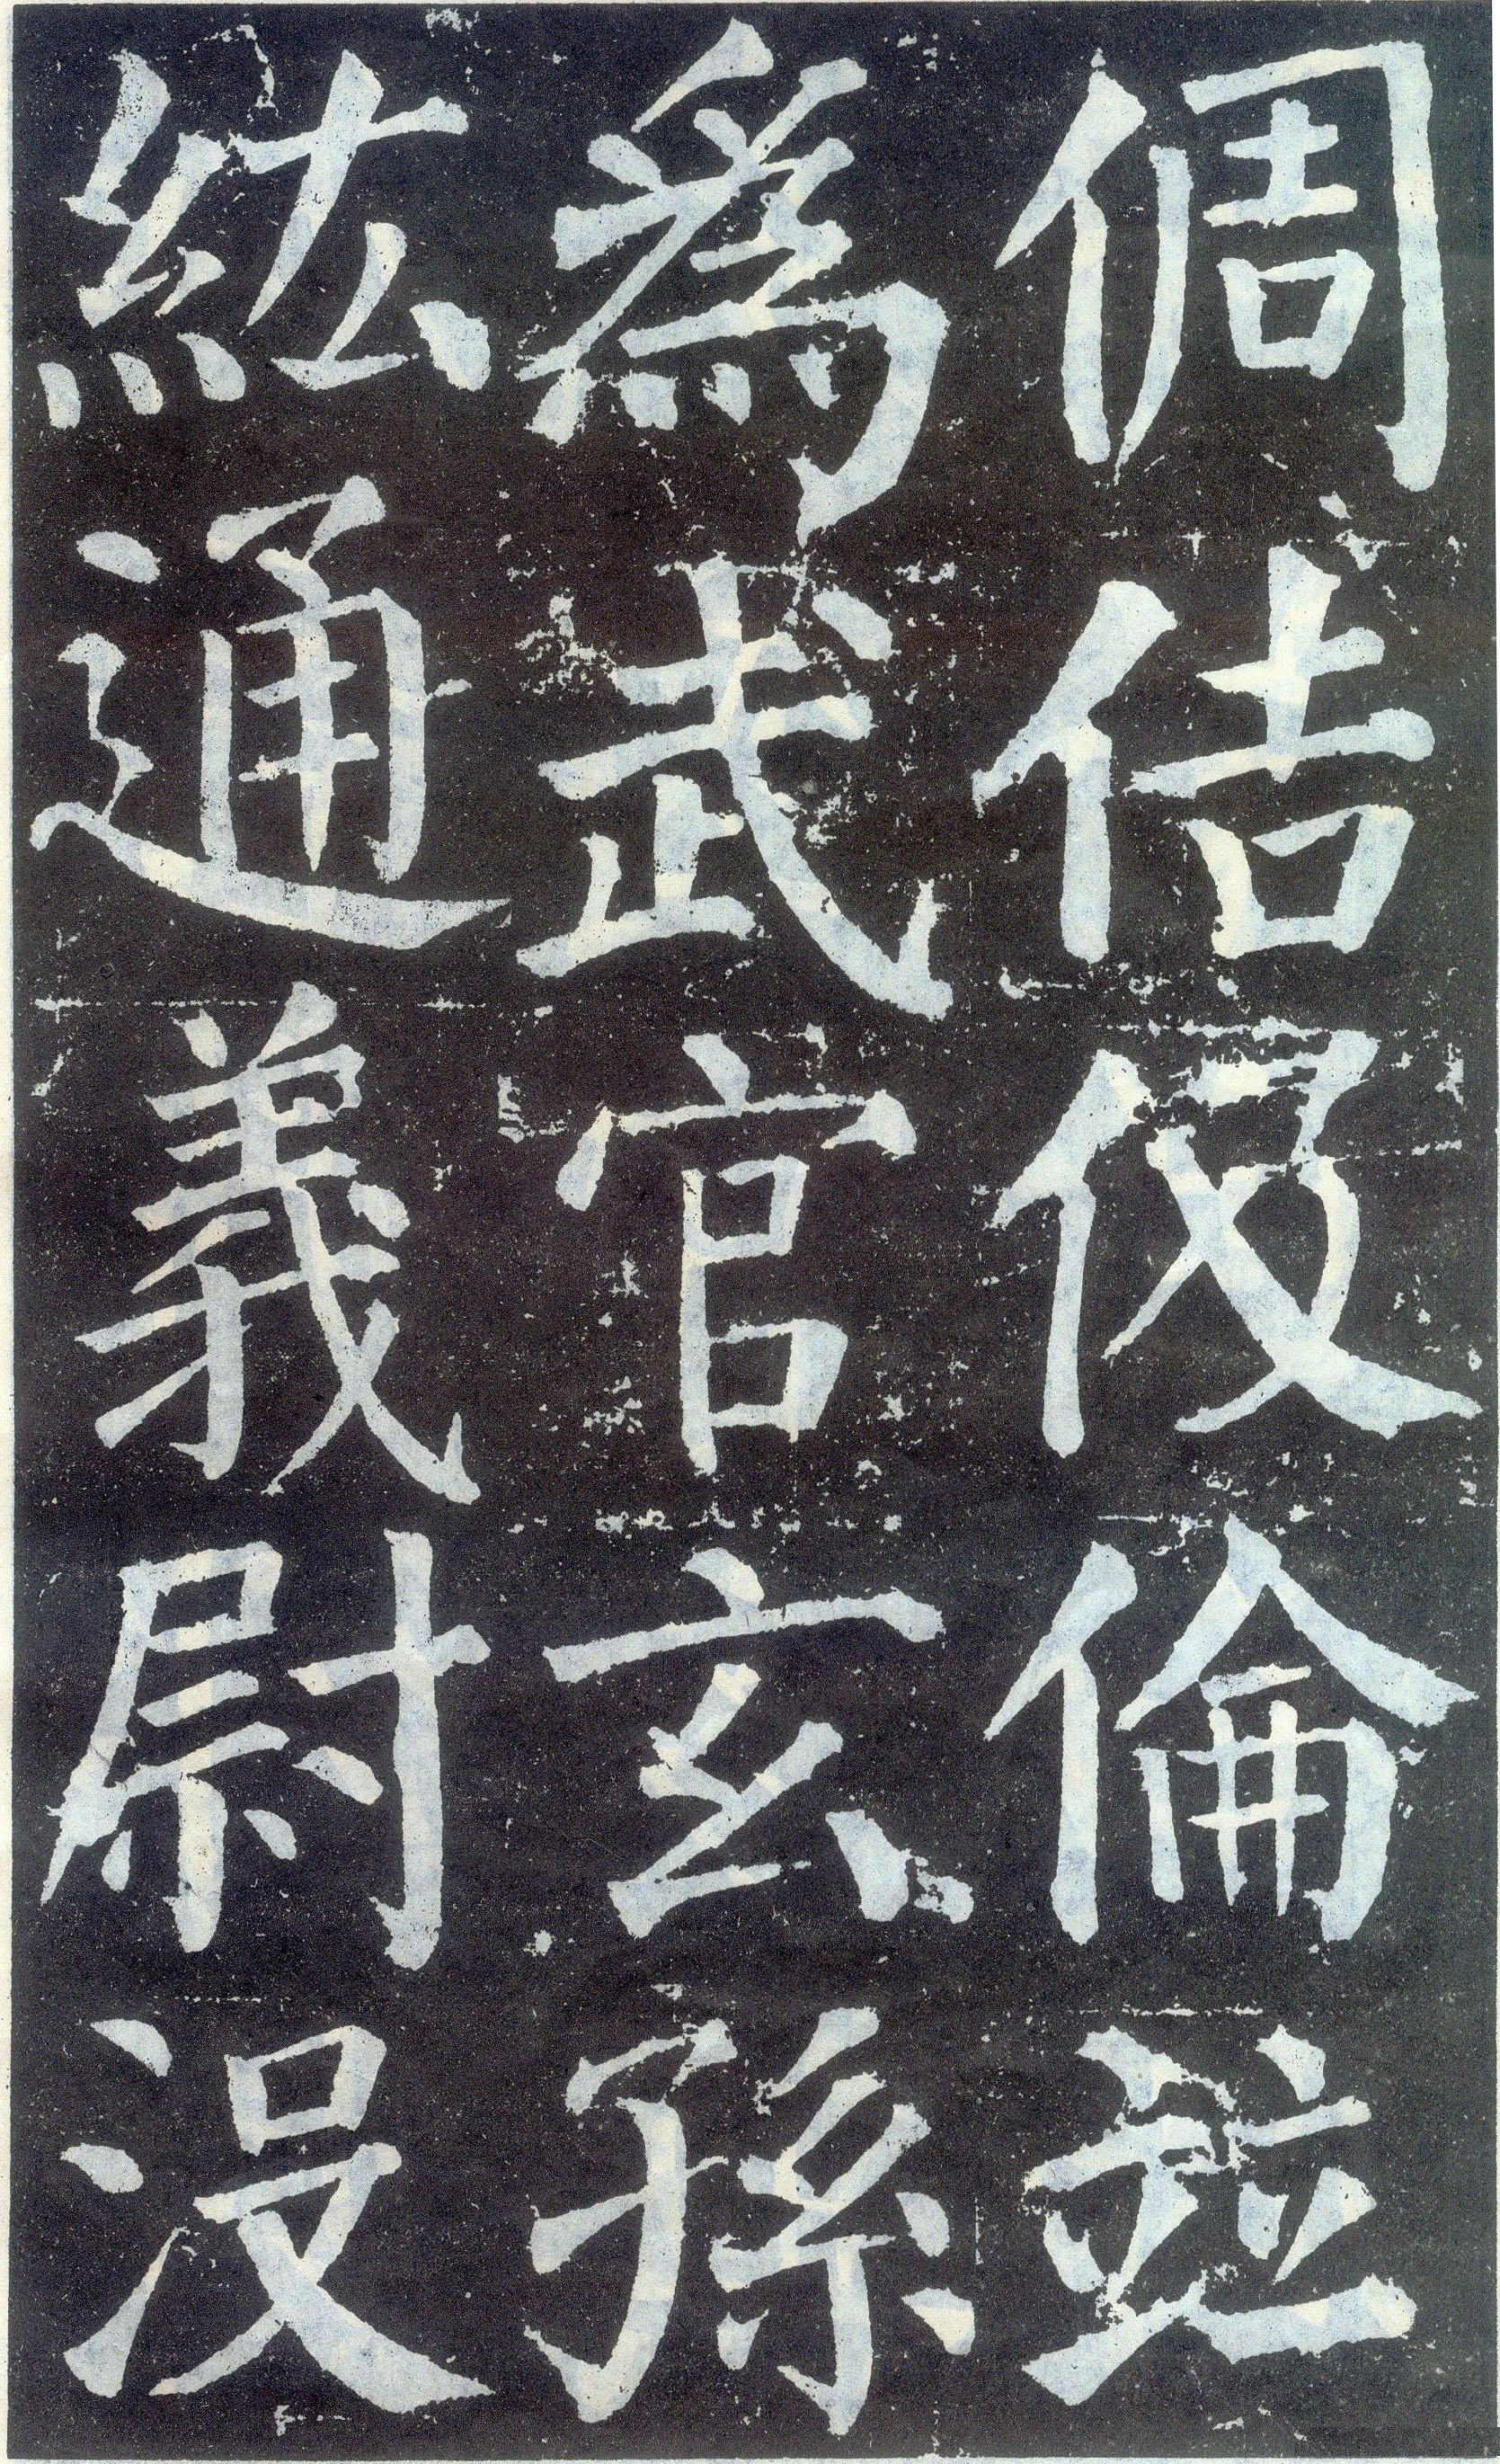 倜佶伋倫並
爲武官玄孫
紘通義尉没